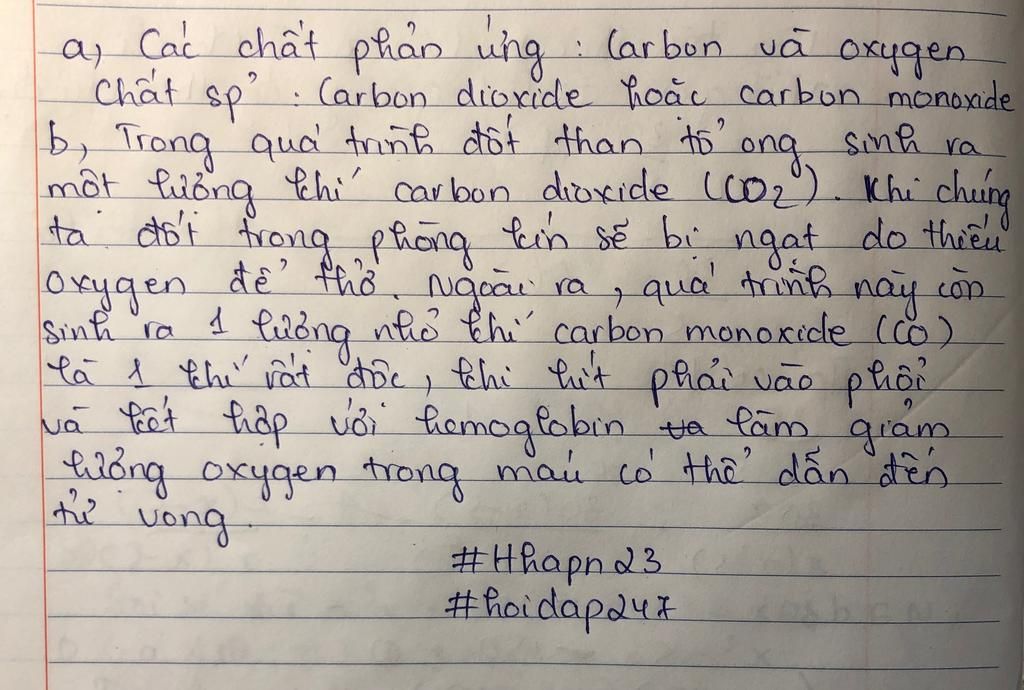 a, Các chất phản ứng : Carbon và oxygen
Chất sp' : Carbon dioxide hoặc carbon monoxide
b, Trong quá trình đốt than tổ ong sinh ra
một lượng khí carbon dioxide (CO2). Khi chúng
ta đốt trong phòng kín sẽ bị ngạt do thiếu
oxygen để thở. Ngoài ra, quá trình này còn
sinh ra 1 lượng nhỏ khí carbon monoxide (CO)
là 1 khí rất độc, khi hít phải vào phổi
và kết hợp với hemoglobin làm giảm
lượng oxygen trong máu có thể dẫn đến
tử vong.
#Hhapn23
#hoidap247